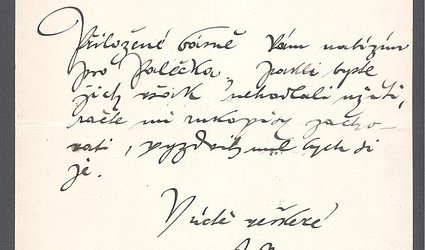 Přiložené básně Vám nabízím
pro Palečka, pakli byste
jich však nehodlali užíti,
račte mi rukopisy zacho-
vati, vyzdvihnul bych si
je.
V úctě veškeré